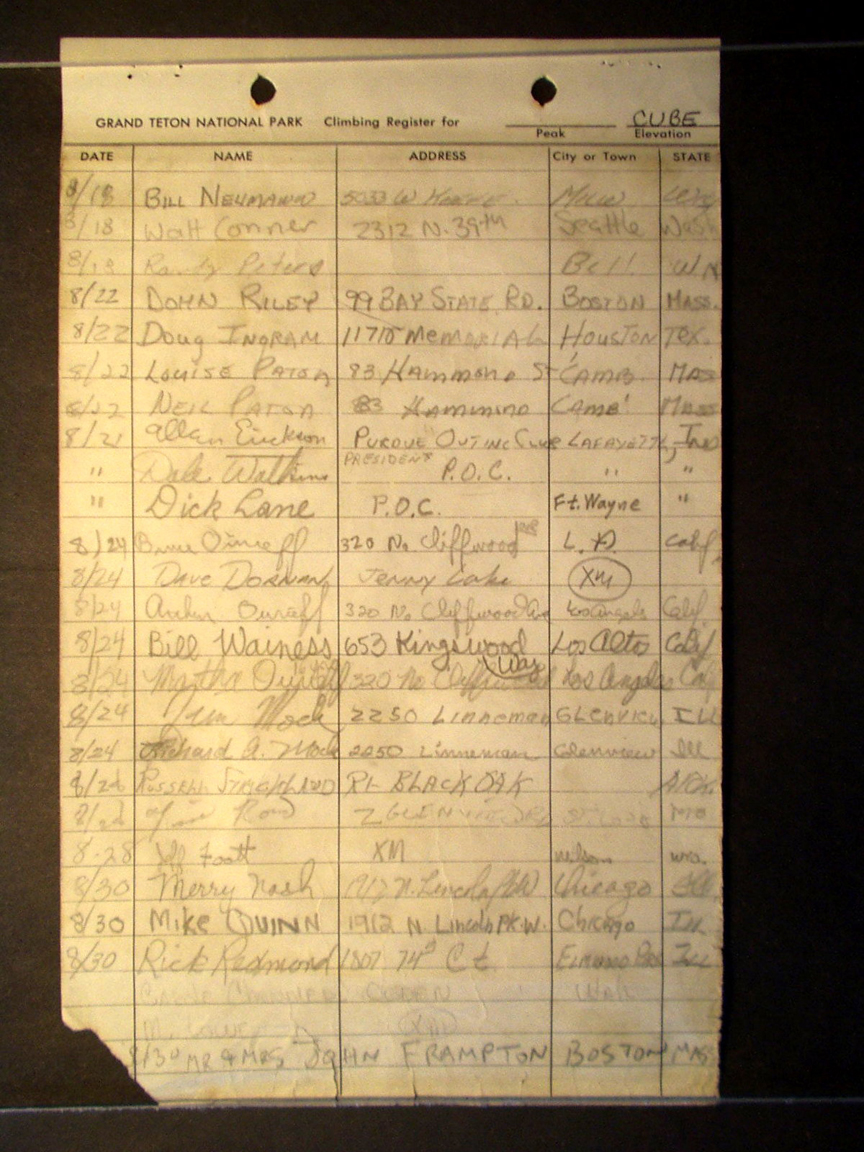 CUBE
GRAND TETON NATIONAL PARK Climbing Register for
Peak Elevation
DATE NAME ADDRESS City or Town STATE
8/18 BILL NEUMANN 5033 W
8/18 Walt Conner 2312 N. 39th Seattle Wash
Randy Peters Bell
8/22 JOHN RILEY 99 BAY STATE RD. BOSTON MASS.
8/22 DOUG INGRAM MEMORIAL HOUSTON TEX.
8/22 LOUISE PATON 83 HAMMOND ST CAMB. MASS
8/22 NEIL PATON 83 HAMMOND CAMB' MASS
8/21 Allan Erickson PURDUE OUTING CLUB LAFAYETTE, IND
" Dale Watkins PRESIDENT P.O.C. " "
" Dick Lane P.O.C. Ft. Wayne "
8/24 320 No. Cliffwood L.A. Calif
8/24 Dave Dornan Jenny Lake XM
8/24 320 No Cliffwood Ave Los Angels Calif
8/24 Bill Wainess 653 Kingswood Way Los Altos Calif
8/24 Martha 320 No Cliffwood Los Angeles Cal
8/24 Jim Mock 2250 LINNEMAN GLENVIEW ILL
8/24 Richard A. Mock 2250 Linneman Glenview Ill
RUSSELL STRICKLAND Rt. BLACK OAK ARK.
Z GLEN MO
8-28 Jeff Foott XM
8/30 Merry Nash 1912 N. Lincoln Chicago Ill.
8/30 MIKE QUINN 1912 N. Lincoln PK. W. Chicago Ill
8/30 Rick Redmond 1807 74th Ct. ELMWOOD Ill
OGDEN
M. XM
8/30 MR & MRS JOHN FRAMPTON BOSTON MAS